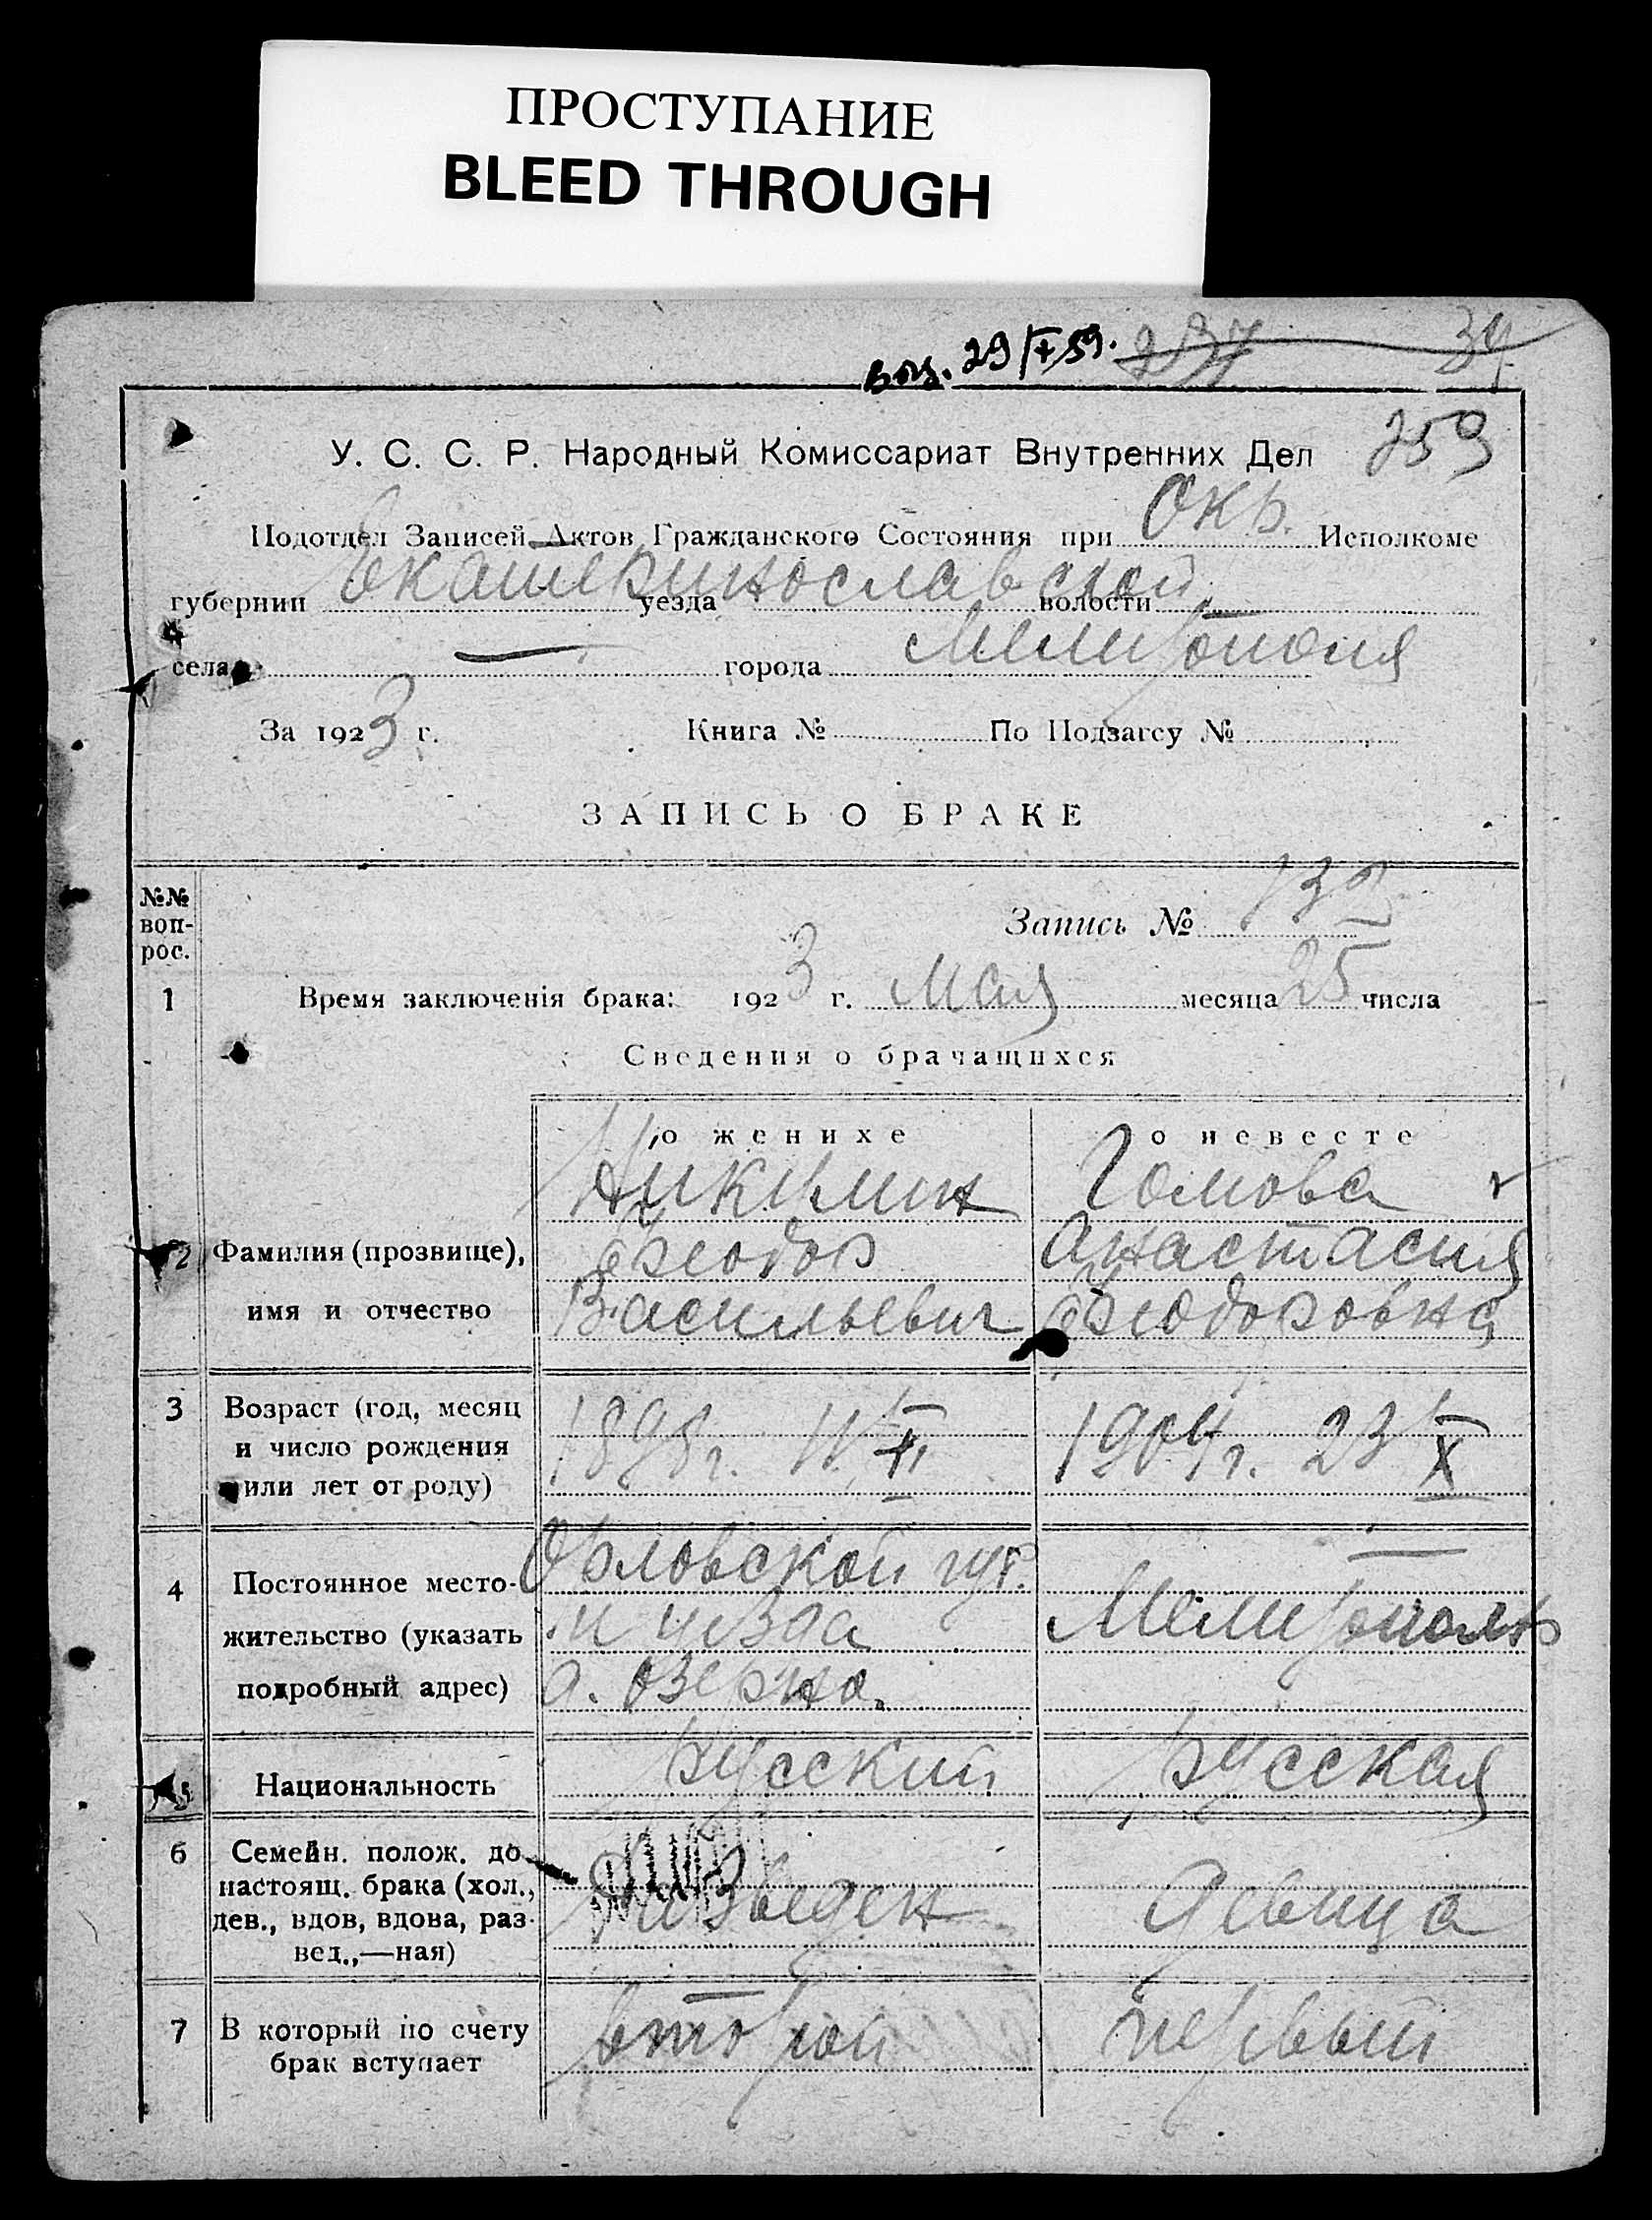 ПРОСТУПАНИЕ
BLEED THROUGH
29/X 59. 237 34
259
У. С. С. Р. Народный Комиссариат Внутренних Дел
Подотдел Записей Актов Гражданского Состояния при Окр. Исполкоме
губернии Екатеринославской уезда волости
села — города Мелитополя
За 1923 г. Книга № По Подзагсу №
ЗАПИСЬ О БРАКЕ
№№ вопрос.
Запись №
1 Время заключенія брака: 1923 г. Мая месяца 25 числа
Сведения о брачащихся
о женихе о невесте
Никулин Гомова
2 Фамилия (прозвище), Феодор Анастасия
имя и отчество Васильевич Феодоровна
3 Возраст (год, месяц
и число рождения 1898 г. 11/II 1904 г. 23/X
или лет от роду)
Орловской губ.
4 Постоянное место-
жительство (указать уезда Мелитополь
подробный адрес) Озерна
5 Национальность русский русская
6 Семейн. полож. до
настоящ. брака (хол.,
дев., вдов, вдова, раз- Разведен девица
вед.,—ная)
7 В который по счету второй первый
брак вступает